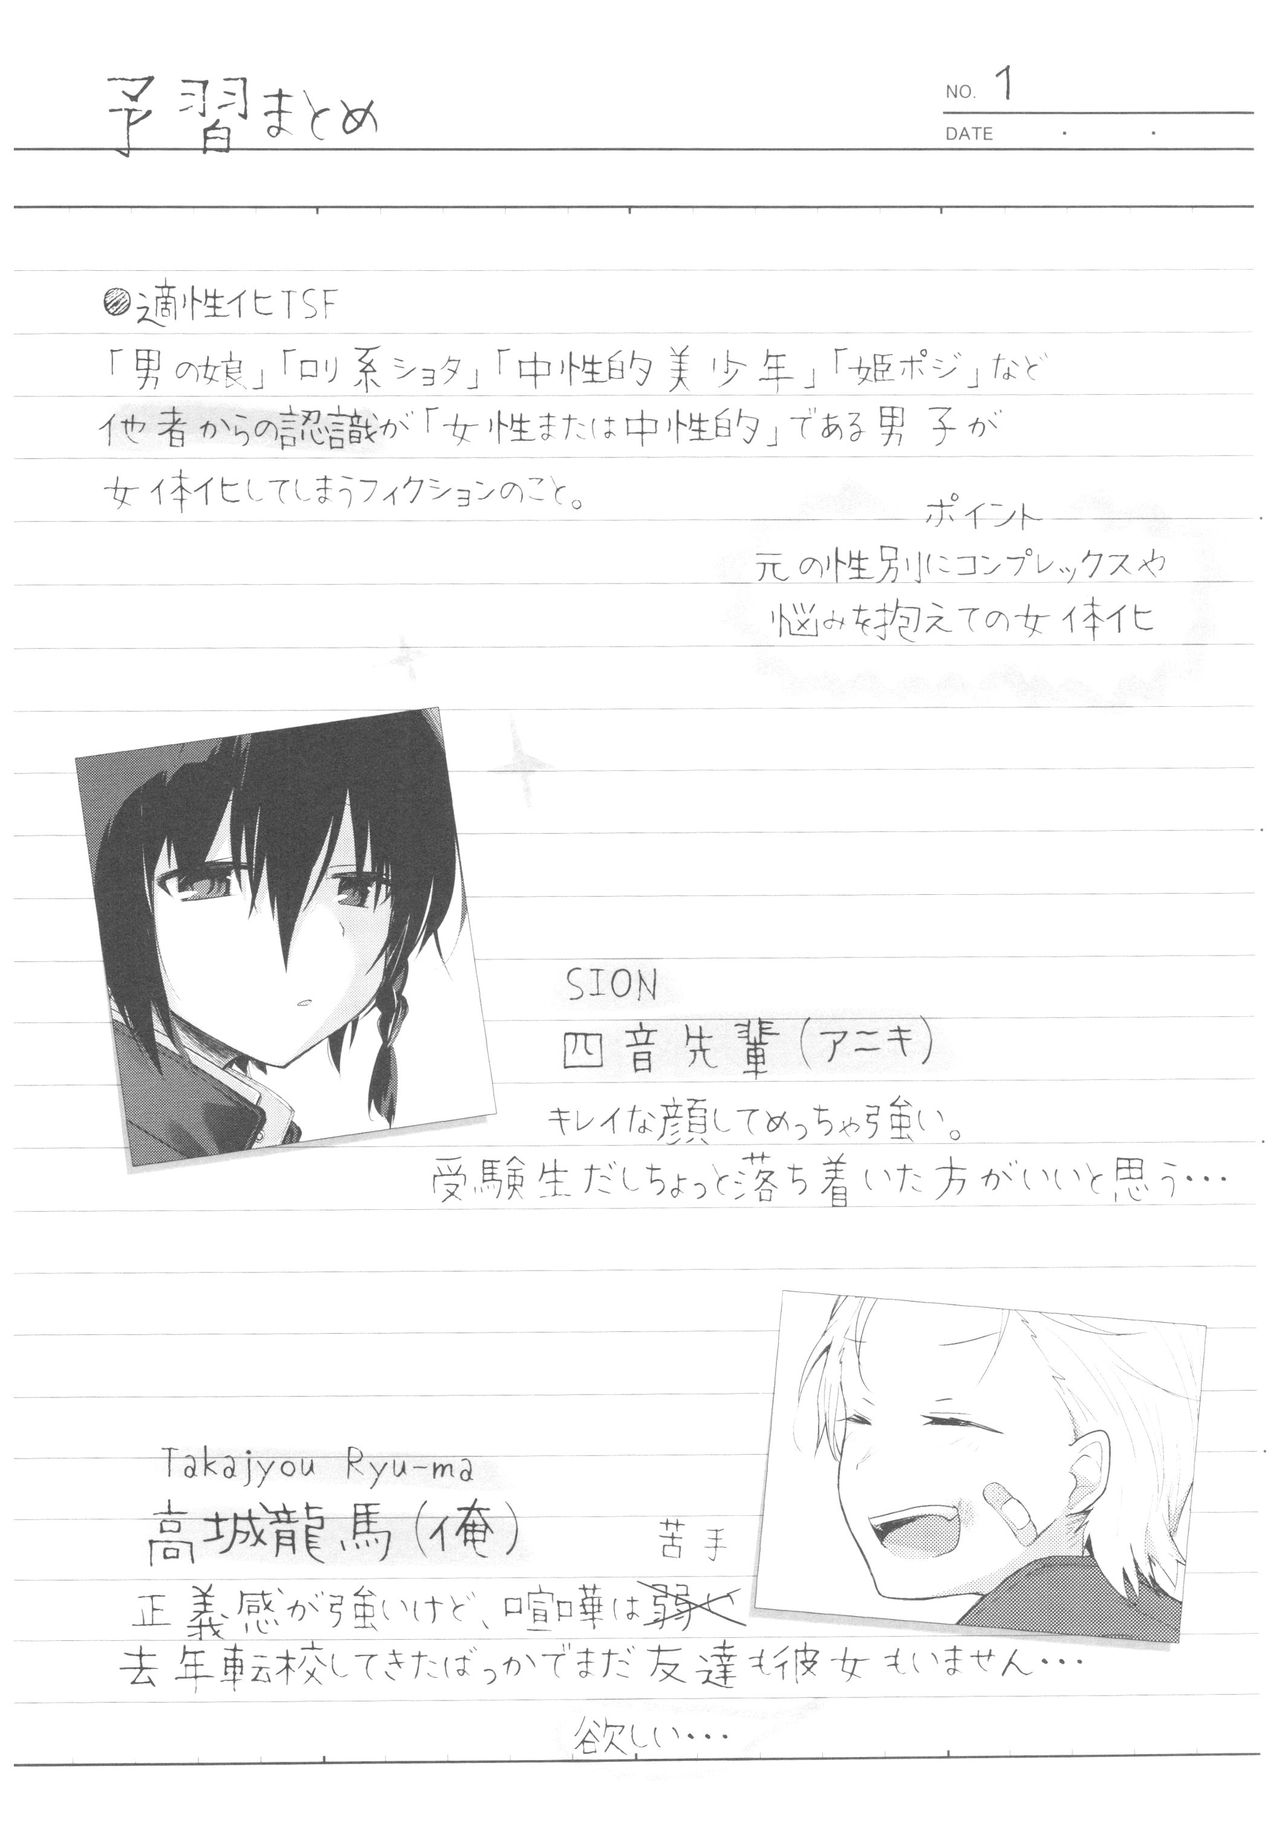 予習まとめ
NO. 1
DATE ・ ・
●適性化TSF
「男の娘」「ロリ系ショタ」「中性的美少年」「姫ポジ」など
他者からの認識が「女性または中性的」である男子が
女体化してしまうフィクションのこと。
ポイント
元の性別にコンプレックスや
悩みを抱えての女体化
SION
四音先輩(アニキ)
キレイな顔してめっちゃ強い。
受験生だしちょっと落ち着いた方がいいと思う・・・
Takajyou Ryu-ma
高城龍馬(俺)
苦手
正義感が強いけど、喧嘩は弱い
去年転校してきたばっかでまだ友達も彼女もいません・・・
欲しい・・・